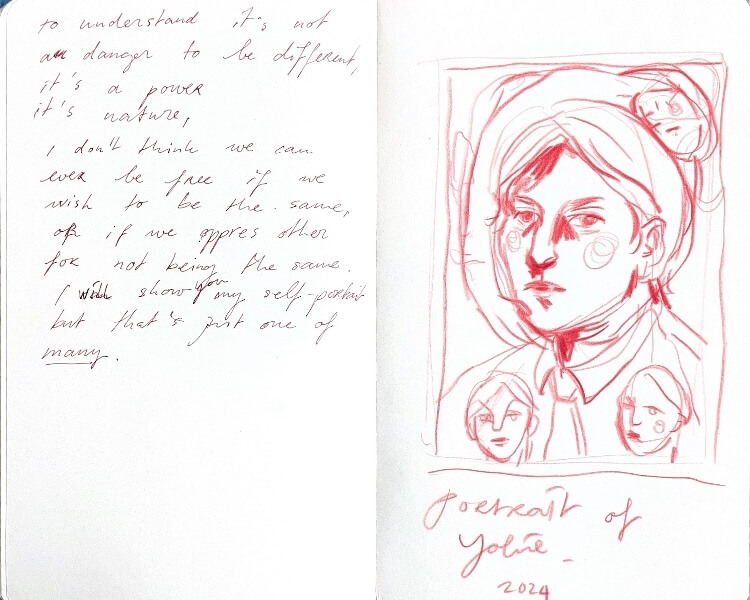 to understand it's not
an danger to be different,
it's a power
it's nature,
I don't think we can
ever be free if we
wish to be the same,
or if we oppres other
for not being the same.
I will show you my self-portrait
but that's just one of
many.
Portrait of
2024